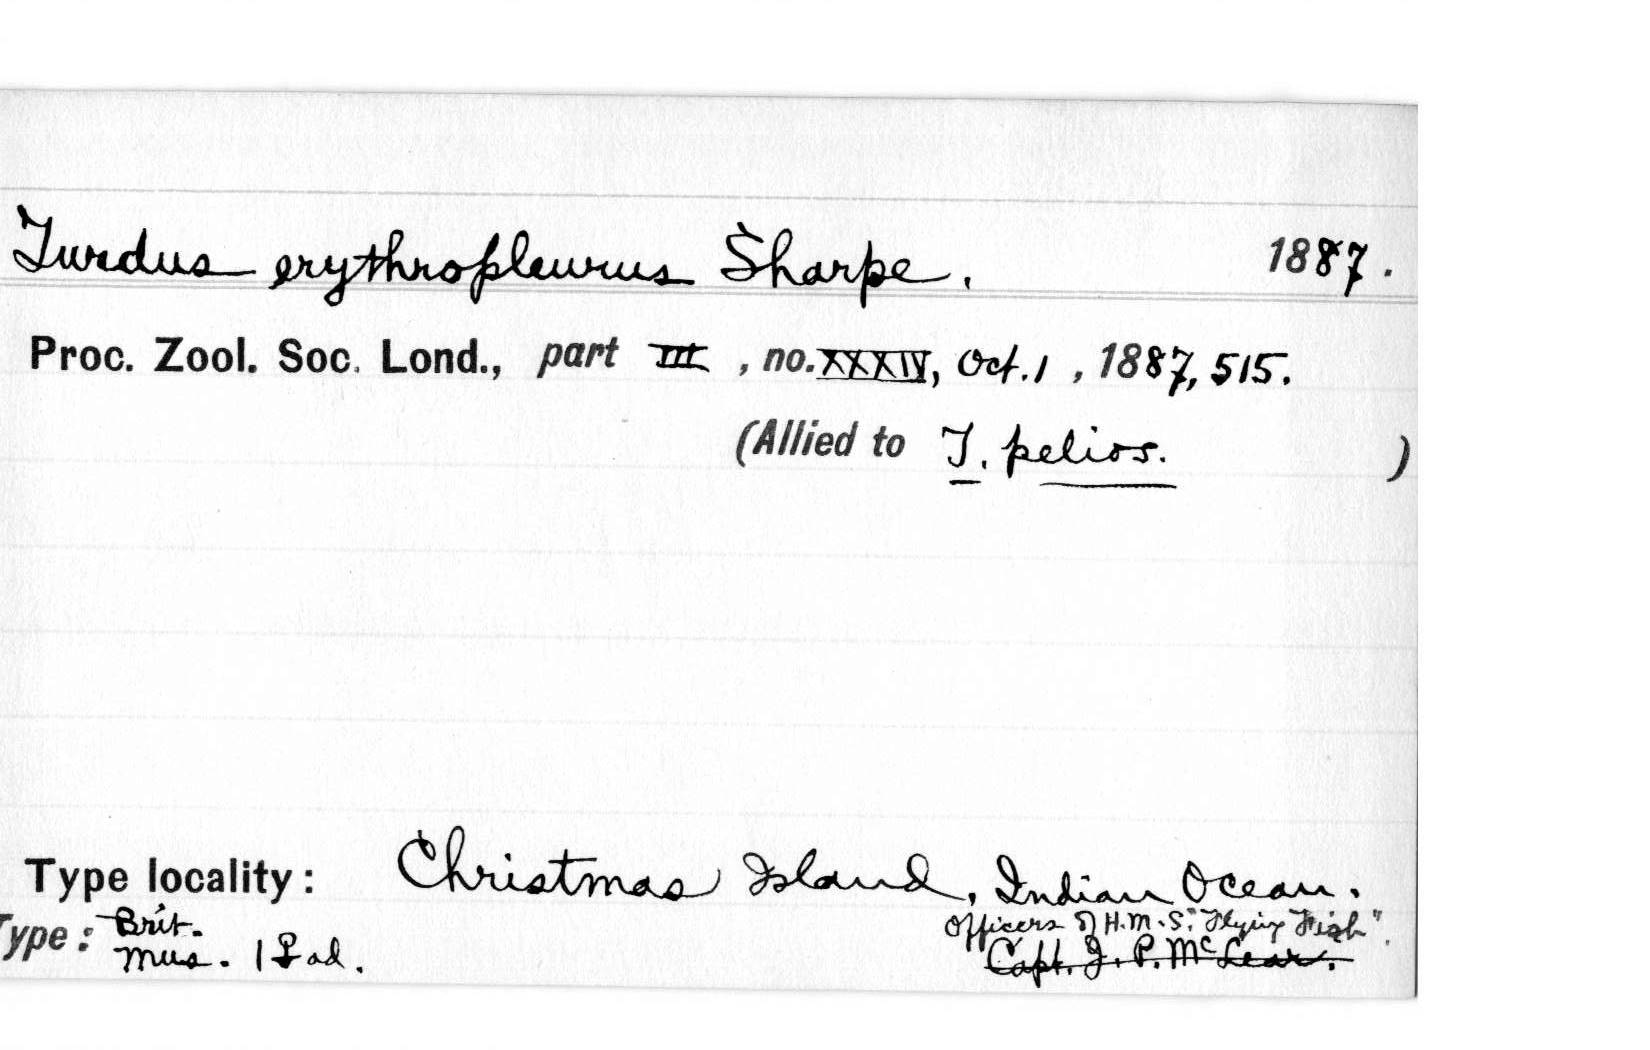 Turdus erythropleurus Sharpe. 1887.
Proc. Zool. Soc. Lond., part III, no. XXXIV, Oct. 1, 1887, 515.
(Allied to T. pelios. )
Type locality: Christmas Island, Indian Ocean.
Officers of H.M.S. "Flying Fish".
Type: Brit. Mus. 1 ♀ ad. Capt. J. P. McLear.